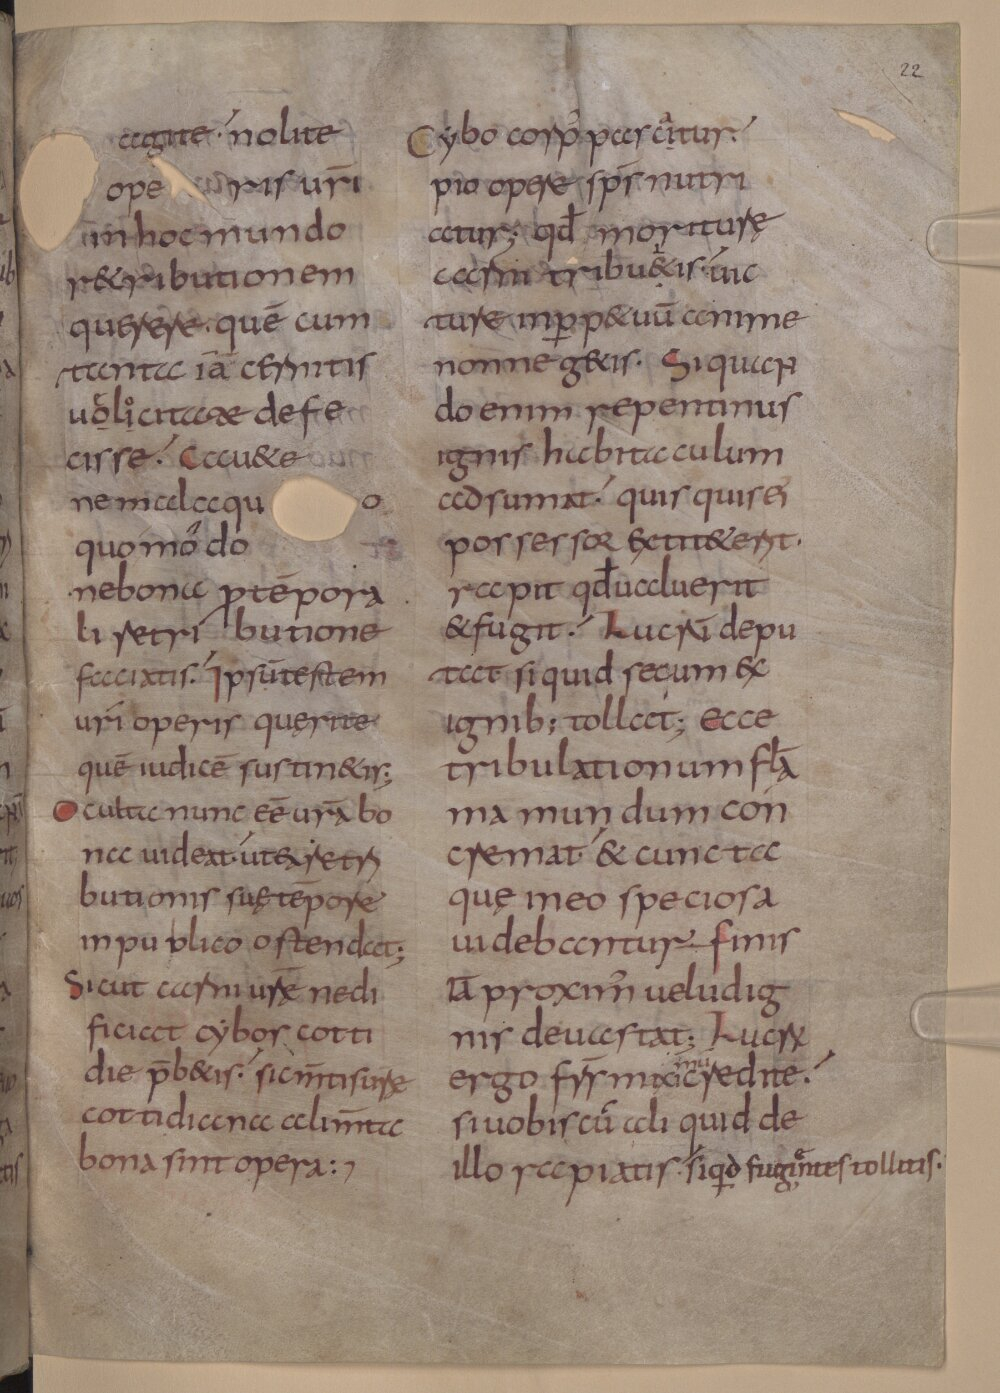 22
agite· nolite
ope ris ur̄i
in hoc mundo
r&ributionem
querere· quē cum
tanta iā cernitis
uolicitate defe
cisse· Cau&e
ne malaqu o
quomodo
nebona ꝑtēpora
li retri butione
faciatis· Ipsūtestem
ur̄i operis querite
quē iudicē sustin&is;
Occulta nunc eē ur̄a bo
na uideat· utexretri
butionis suę tēpore
inpublico ostendat;
Sicut carni ur̄ę nedi
ficiat cybos cotti
die p̄b&is· sic mtisurę
cottidiana alimta
bona sint opera:
Cybo corp̄ pascitur·
pio opere sp̄s nutri
atur; qđ moriturę
carni tribu&is· uic
ture inꝑp&uū anime
nonneg&is· Siquan
do enim repentinus
ignis habitaculum
adsumat· quisquis ei
possessor extit&erit·
rapit qđualuerit
&fugit· Lucrū depu
tat siquid secum ex
ignib; tollat; Ecce
tribulationum flā
ma mundum con
cremat· & cuncta
quę ineo speciosa
uidebantur finis
iā proxim̄ uelud ig
nis deuastat; Lucrū
ergo frr̄ maximū credite·
siuobiscū ali quid de
illo rapiatis· siqd fugientes tollitis·